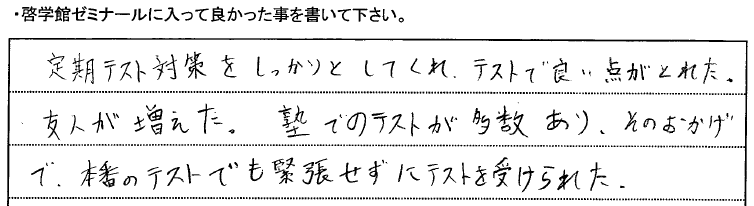 ・啓学館ゼミナールに入って良かった事を書いて下さい。
定期テスト対策をしっかりとしてくれ、テストで良い点がとれた。
友人が増えた。 塾でのテストが多数あり、そのおかげ
で、本番のテストでも緊張せずにテストを受けられた。